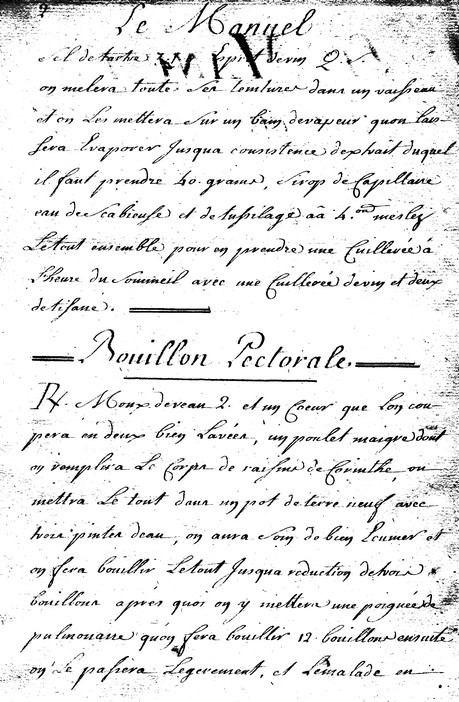 Le Manuel
Sel de tartre Esprit de vin 2
on melera toute Ses teintures dans un vaisseau
et on Les mettera Sur un bain devapeur quon lais-
sera Evaporer Jusqua consistence dextrait duquel
il faut prendre 40 grams, Sirop de Capillaire
eau de Scabieuse et de tussilage aã 4. onc meslez
Le tout ensemble pour en prendre une Cuillerée à
l'heure du Sommeil avec une Cuillerée devin et deux
de tisane.
Bouillon Pectorale.
R. Moux deveau 2. et un Coeur que Lon cou
pera en deux bien Lavéen, un poulet maigre dont
on remplira Le Corps de raisins de Corinthe, on
mettra Le tout dans un pot de terre neuf avec
trois pintes deau, on aura Soin de bien Ecumer et
on fera bouillir Le tout Jusqua reduction de trois
bouillons apres quoi on y mettera une poignée de
pulmonaire quon fera bouillir 12 bouillons ensuite
on Le passera Legerement, et Lemalade en